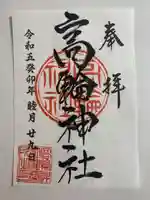 奉拝
高輪神社
令和五癸卯年睦月廿九日